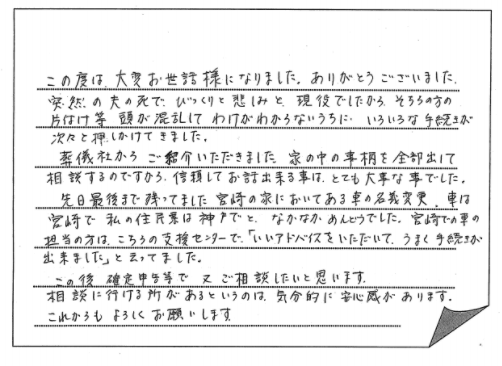 この度は、大変お世話様になりました。ありがとうございました。
突然の夫の死で、びっくりと悲しみと、現役でしたから、そちらの方の
片付け等 頭が混乱して わけがわからないうちに、いろいろな手続きが
次々と押しかけてきました。
葬儀社から ご紹介いただきました。家の中の事柄を全部出して
相談するのですから、信頼してお話出来る事は、とても大事な事でした。
先日最後まで残ってました 宮崎の家においてある車の名義変更、車は
宮崎で 私の住民票は神戸でと、なかなかめんどうでした。宮崎での車の
担当の方は、こちらの支援センターで、「いいアドバイスをいただいて、うまく手続きが
出来ました」と云ってました。
この後 確定申告等で 又ご相談したいと思います。
相談に行ける所があるというのは、気分的に安心感があります。
これからも よろしくお願いします。